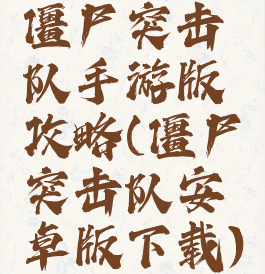 僵尸突击
队手游版
攻略(僵尸
突击队安
卓版下载)